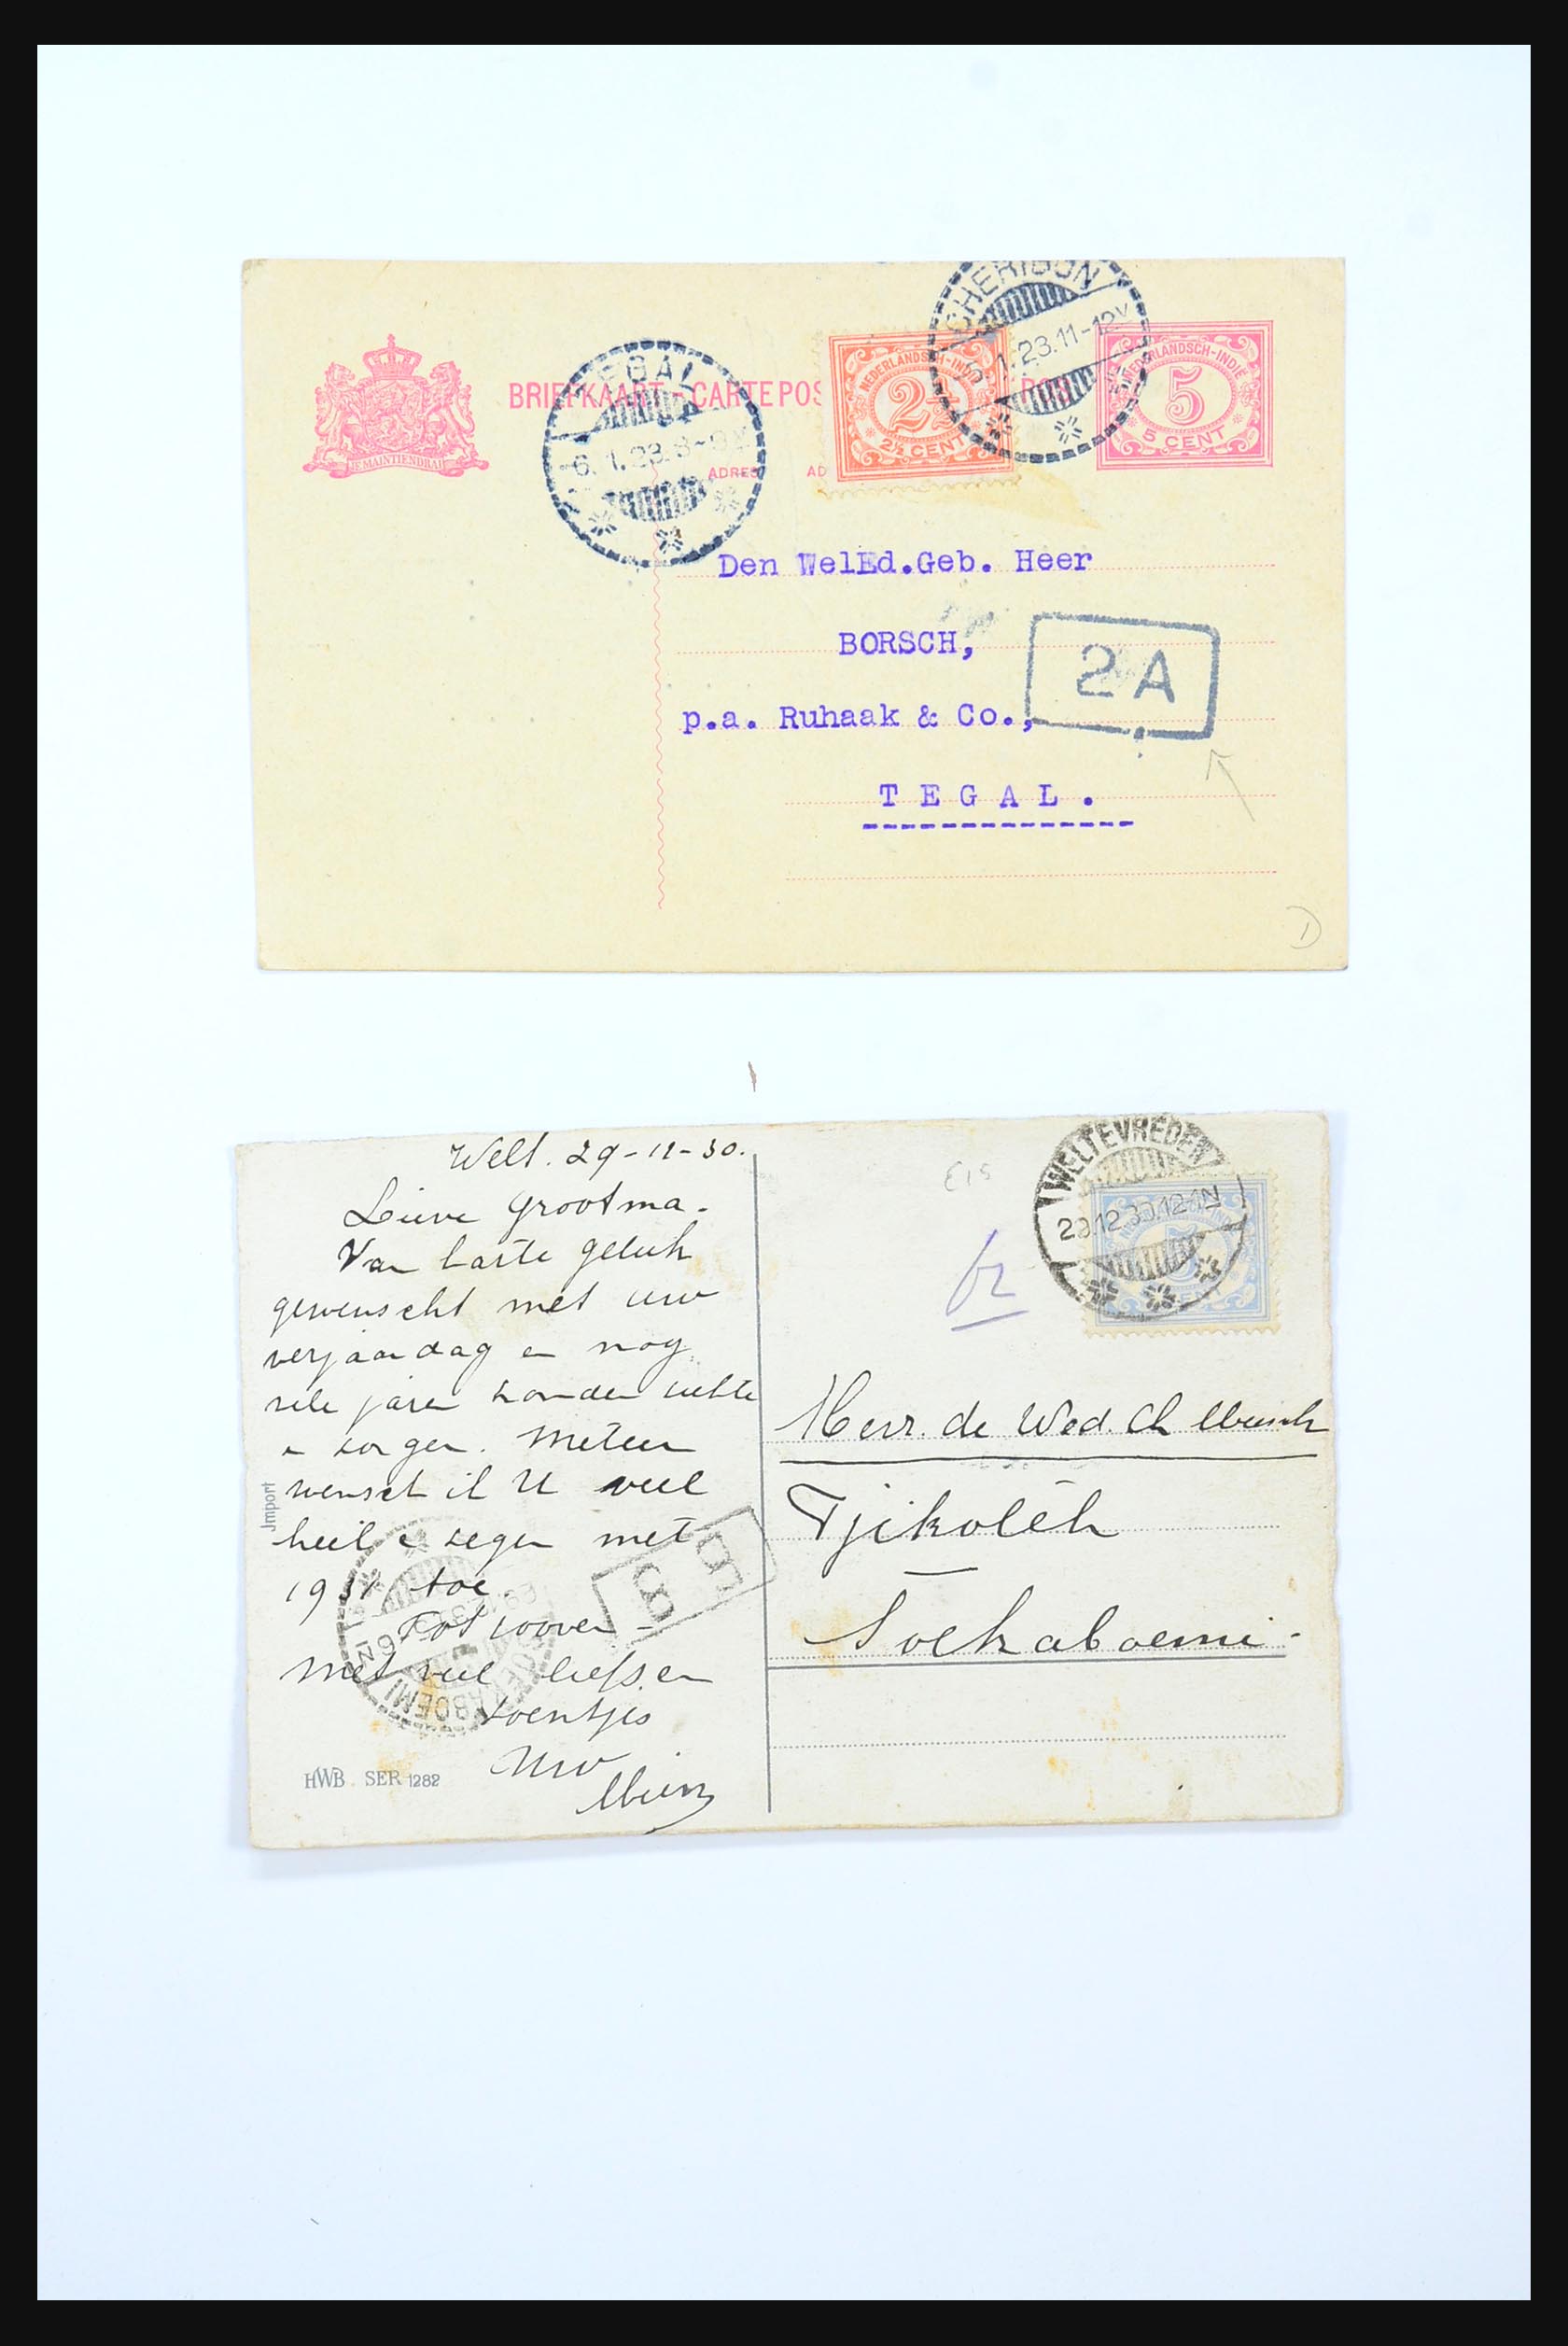 BRIEFKAART - CARTE POS
JE MAINTIENDRAI
ADRES
AD
TEGAL
6.1.23.8-9V
CHERIBON
5.1.23.11-12V
NEDERLANDSCH-INDIE
2½
2½ CENT
NEDERLANDSCH-INDIE
5
5 CENT
Den WelEd.Geb. Heer
BORSCH,
p.a. Ruhaak & Co.,
T E G A L .
2 A
1
Welt. 29-12-30.
Lieve Grootma.
Van harte geluk
gewenscht met uw
verjaardag en nog
vele jaren zonder ziekte
en zorgen. Meteen
wensch ik U veel
heil en zegen met
1931 toe
Tot zoover -
Met veel liefs en
zoentjes
Uw
Import
HWB. SER 1282
8
SOEKABOEMI
WELTEVREDEN
29.12.30.12-1N
5
Mevr. de Wed. Ch
Tjikolèh
Soekaboemi.